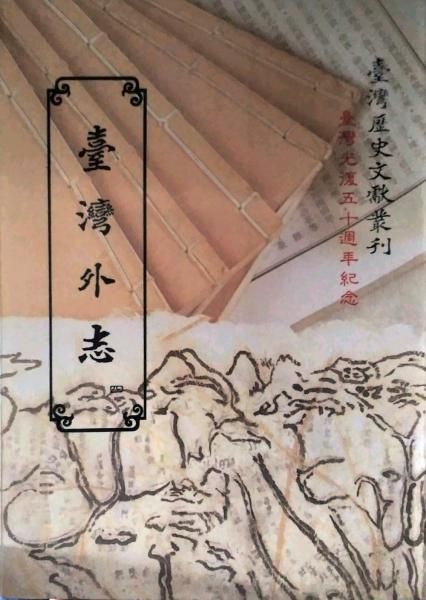 臺灣歷史文獻叢刊
臺灣光復五十週年紀念
臺灣外志
四